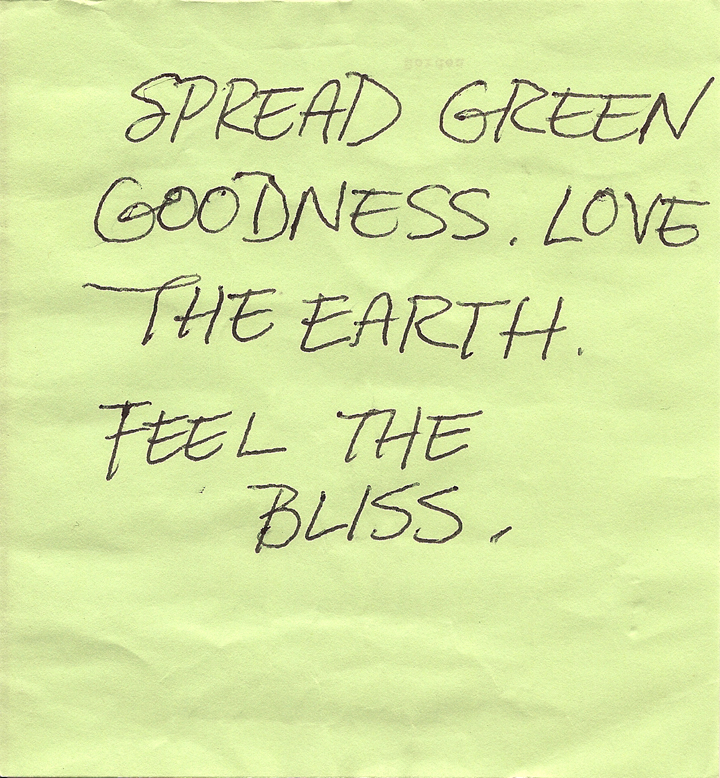 SPREAD GREEN
GOODNESS. LOVE
THE EARTH.
FEEL THE
BLISS.